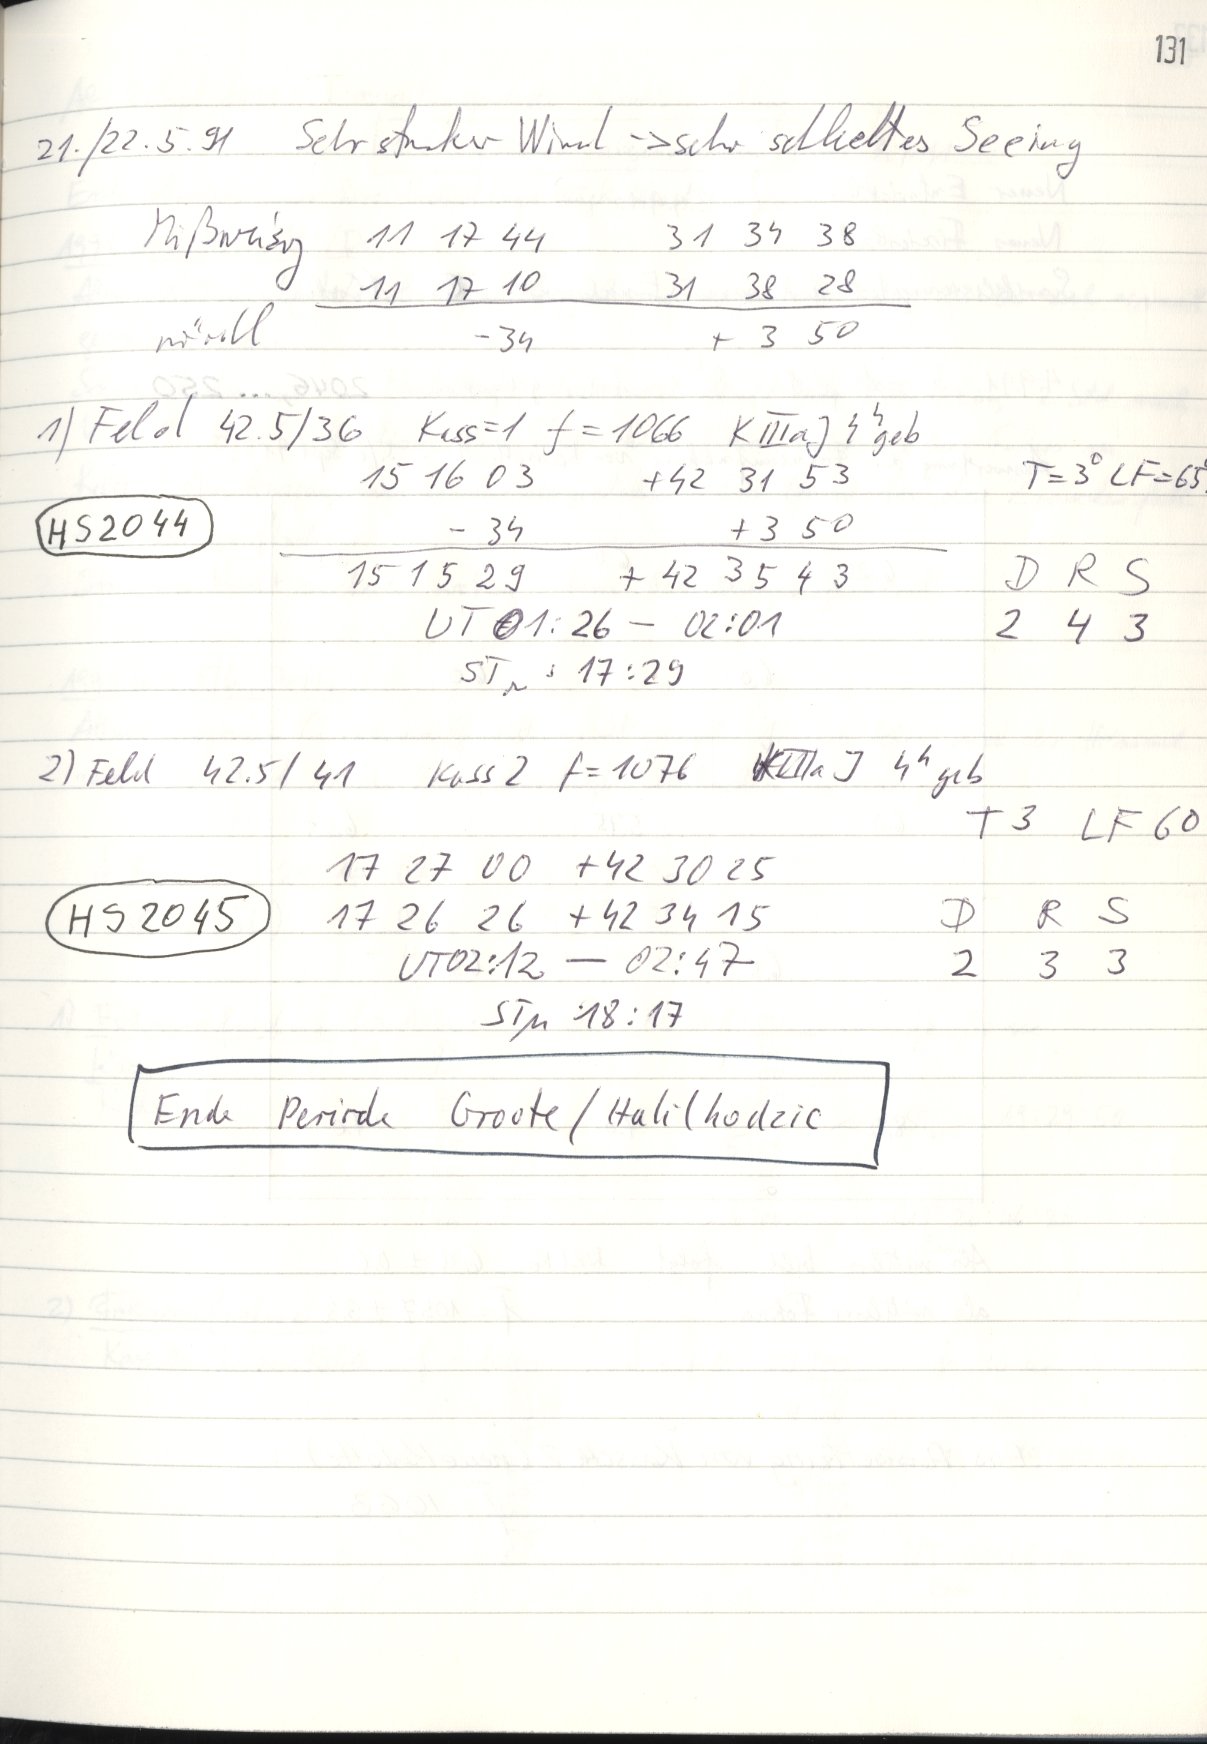 131
21./22.5.91 Sehr starker Wind -> sehr schlechtes Seeing
Mißweisg 11 17 44 31 34 38
11 17 10 31 38 28
-34 + 3 50
1) Feld 42.5/36 Kass=1 f=1066 K IIIaJ 4h geb
15 16 03 +42 31 53 T=3° LF=65
HS2044 - 34 +3 50
15 15 29 + 42 35 43 D R S
UT 01:26 — 02:01 2 4 3
STM : 17:29
2) Feld 42.5/41 Kass 2 f=1076 KIIIaJ 4h geb
T 3 LF 60
17 27 00 +42 30 25
HS2045 17 26 26 +42 34 15 D R S
UT02:12 — 02:47 2 3 3
STM :18:17
Ende Periode Groote/Halilhodzic